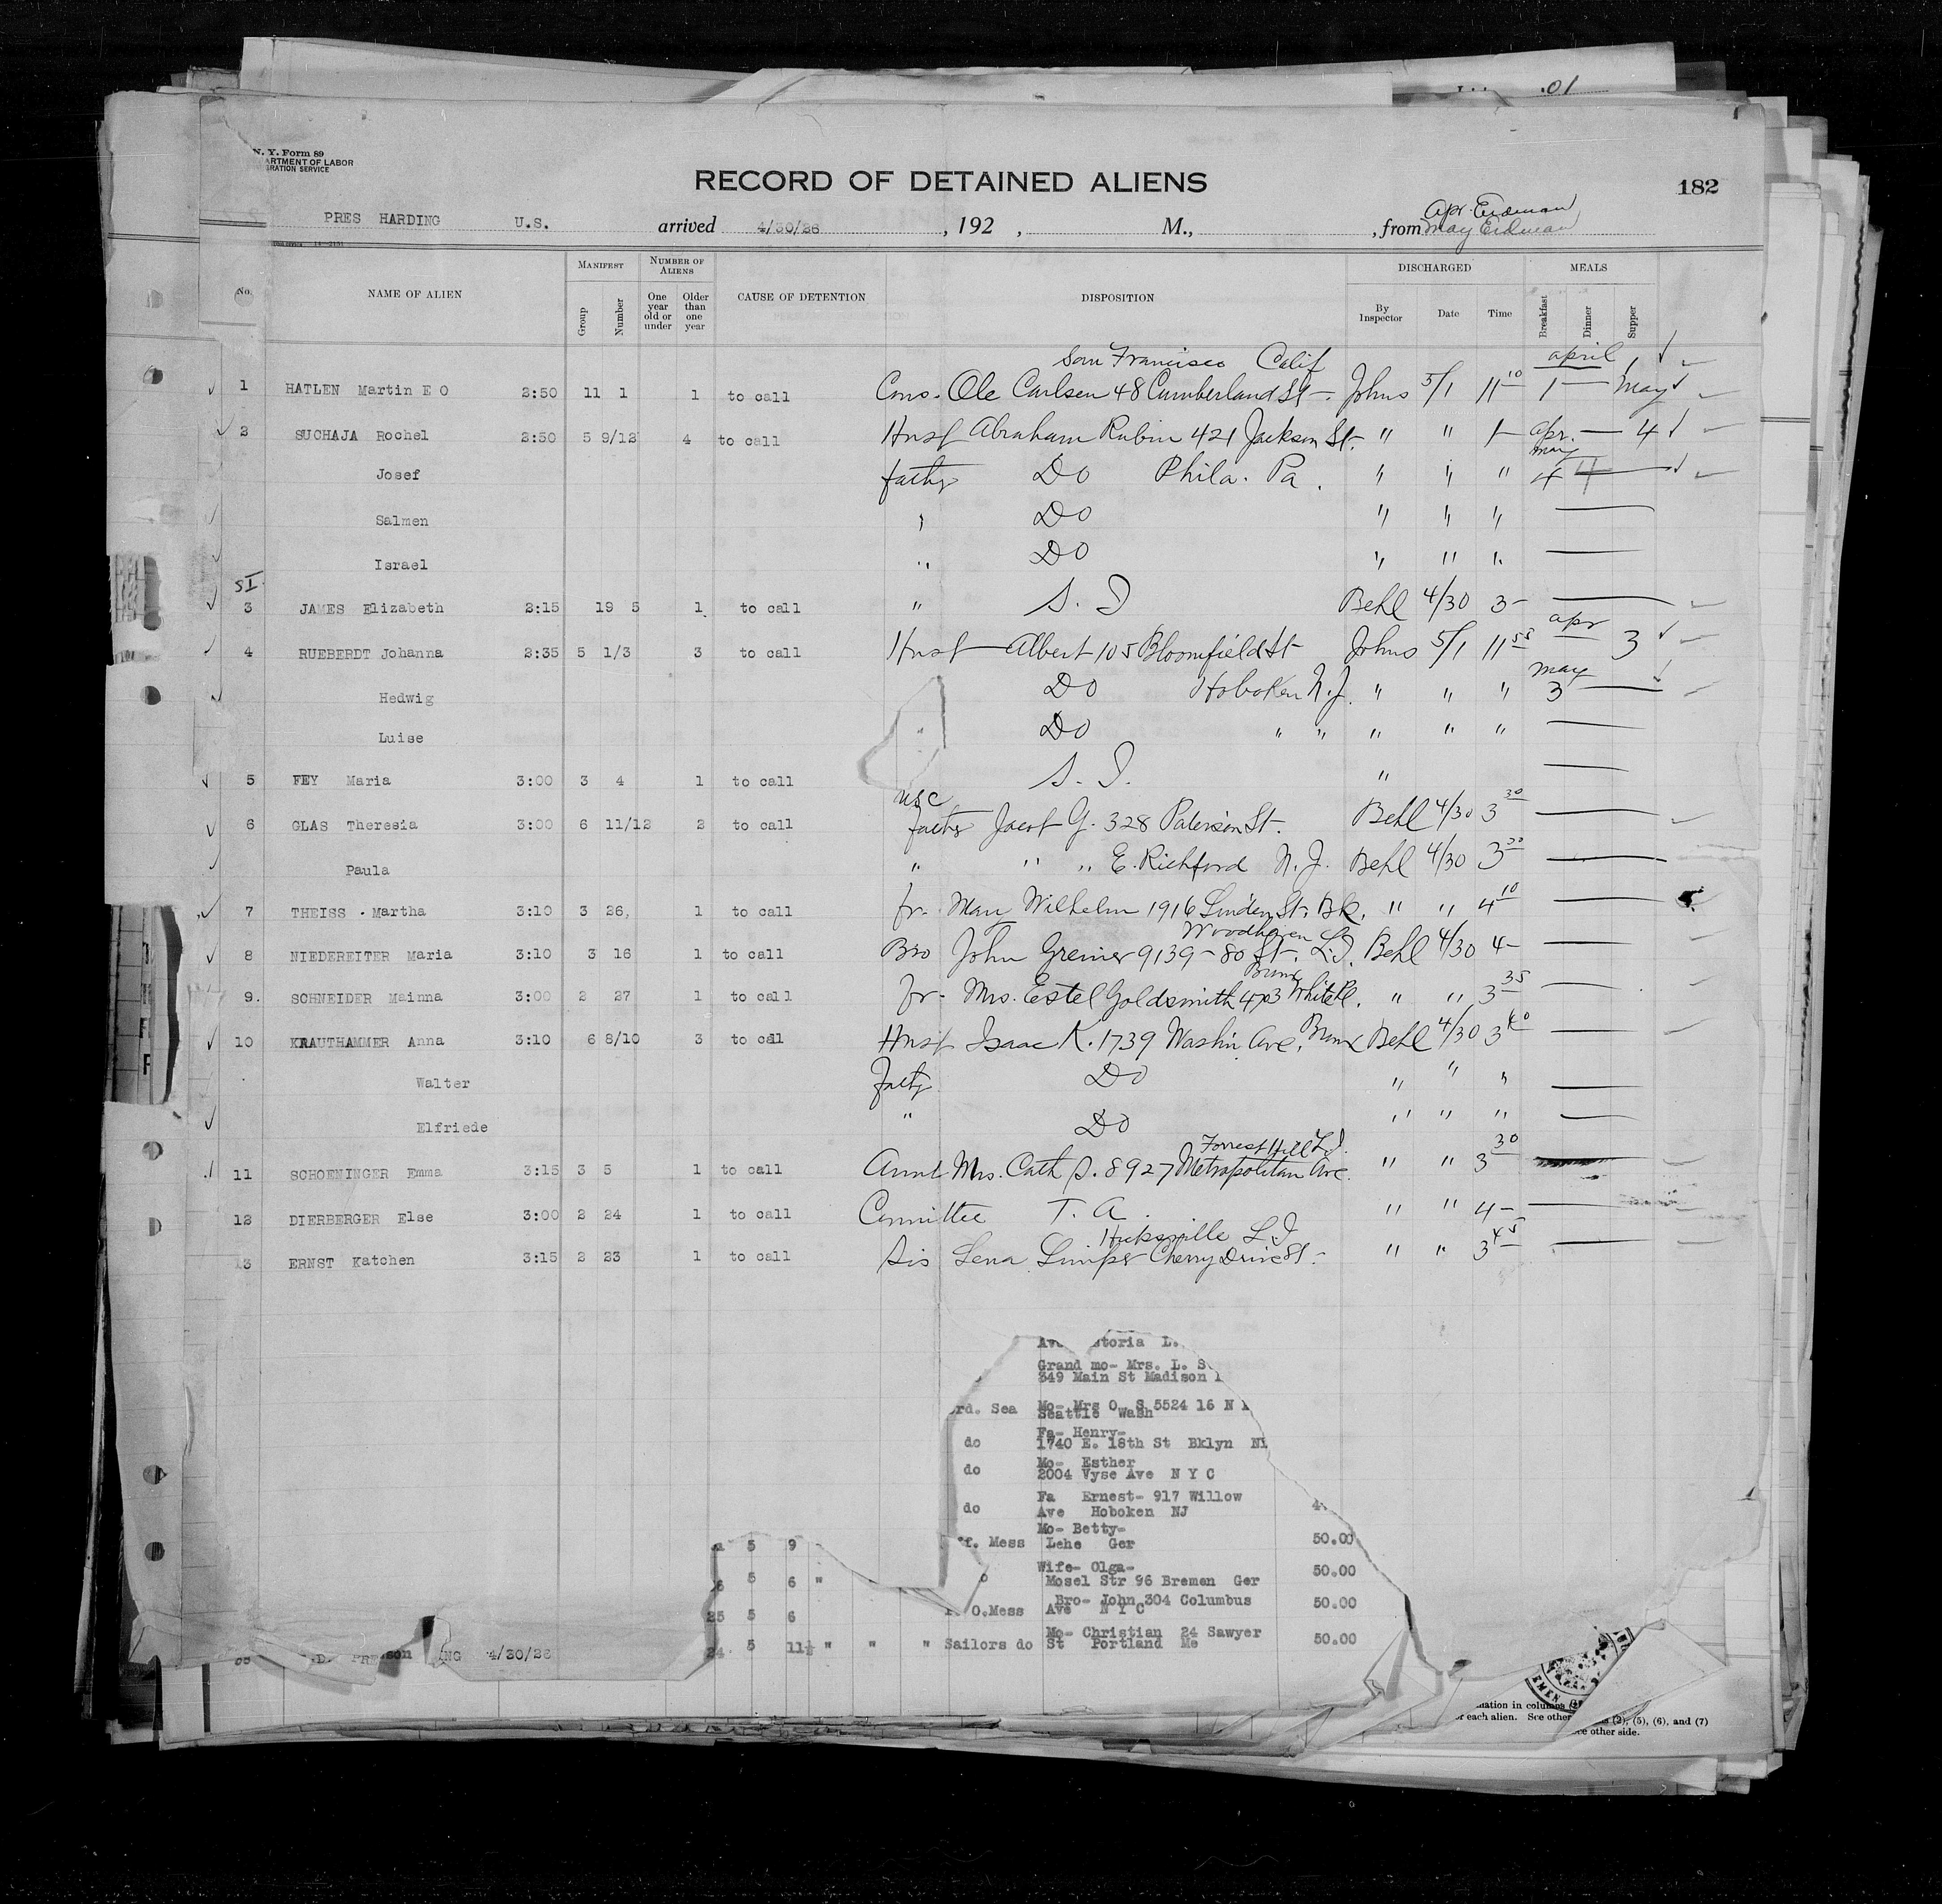 .01
N. Y. Form 89
ARTMENT OF LABOR
GRATION SERVICE
RECORD OF DETAINED ALIENS
182
PRES HARDING U.S. arrived 4/30/26 , 192 , M., , from Apr. Erdman
May Erdman
No. NAME OF ALIEN MANIFEST Group Number NUMBER OF ALIENS One year old or under Older than one year CAUSE OF DETENTION DISPOSITION DISCHARGED By Inspector Date Time MEALS Breakfast Dinner Supper
San Francisco Calif april
1 HATLEN Martin E O 2:50 11 1 1 to call Cons. Ole Carlsen 48 Cumberland St Johns 5/1 11 10 1 — May
2 SUCHAJA Rochel 2:50 5 9/12 4 to call Husb Abraham Rubin 421 Jackson St. " " 1— apr. — 4
may
Josef father Do Phila. Pa. " " " 4
Salmen " Do " " " —
Israel " Do " " " —
SI
3 JAMES Elizabeth 2:15 19 5 1 to call " S. I Behl 4/30 3— —
apr
4 RUEBERDT Johanna 2:35 5 1/3 3 to call Husb Albert 105 Bloomfield St Johns 5/1 11 55 3
may
Hedwig Do Hoboken N.J. " " " 3 —
Luise " Do " " " " " —
5 FEY Maria 3:00 3 4 1 to call S. I. " —
usc
6 GLAS Theresia 3:00 6 11/12 2 to call father Jacob G. 328 Paterson St. Behl 4/30 3 30 —
Paula " " " E. Richford N.J. Behl 4/30 3 30 —
7 THEISS . Martha 3:10 3 26, 1 to call fr. Mary Wilhelm 1916 Linden St. Bk. " " 4 10 —
Woodhaven
8 NIEDEREITER Maria 3:10 3 16 1 to call Bro John Greiner 9139 - 80 St. L.I. Behl 4/30 4— —
Bronx
9. SCHNEIDER Mainna 3:00 2 27 1 to call fr. Mrs. Estel Goldsmith 473 White Pl. " " 3 35 —
10 KRAUTHAMMER Anna 3:10 6 8/10 3 to call Husb Isaac K. 1739 Washn Ave, Bronx Behl 4/30 3 40 —
Walter father Do " " " —
Elfriede " Do " " " —
Forrest Hill L.I.
11 SCHOENINGER Emma 3:15 3 5 1 to call Aunt Mrs. Cath S. 8927 Metropolitan Ave. " " 3 30 —
12 DIERBERGER Else 3:00 2 24 1 to call Committee T. A. " " 4— —
Hicksville L I
13 ERNST Katchen 3:15 2 23 1 to call Sis Lena Simper Cherry Drive St. " " 3 45 —
toria L.
Grand mo- Mrs. L. S
349 Main St Madison
rd. Sea Mo- Mrs O. S 5524 16 N
Seattle Wash
Fa- Henry-
do 1740 E. 18th St Bklyn
Mo- Esther
do 2004 Vyse Ave N Y C
Fa Ernest- 917 Willow
do Ave Hoboken NJ
Mo- Betty-
5 9 f. Mess Lehe Ger 50.00
Wife- Olga-
6 5 6 " o Mosel Str 96 Bremen Ger 50.00
Bro- John 304 Columbus
25 5 6 O.Mess Ave N Y C 50.00
Mo- Christian 24 Sawyer
24 5 11½ " " " Sailors do St Portland Me 50.00
4/30/26
mation in columns
or each alien. See other (2), (5), (6), and (7)
e other side.